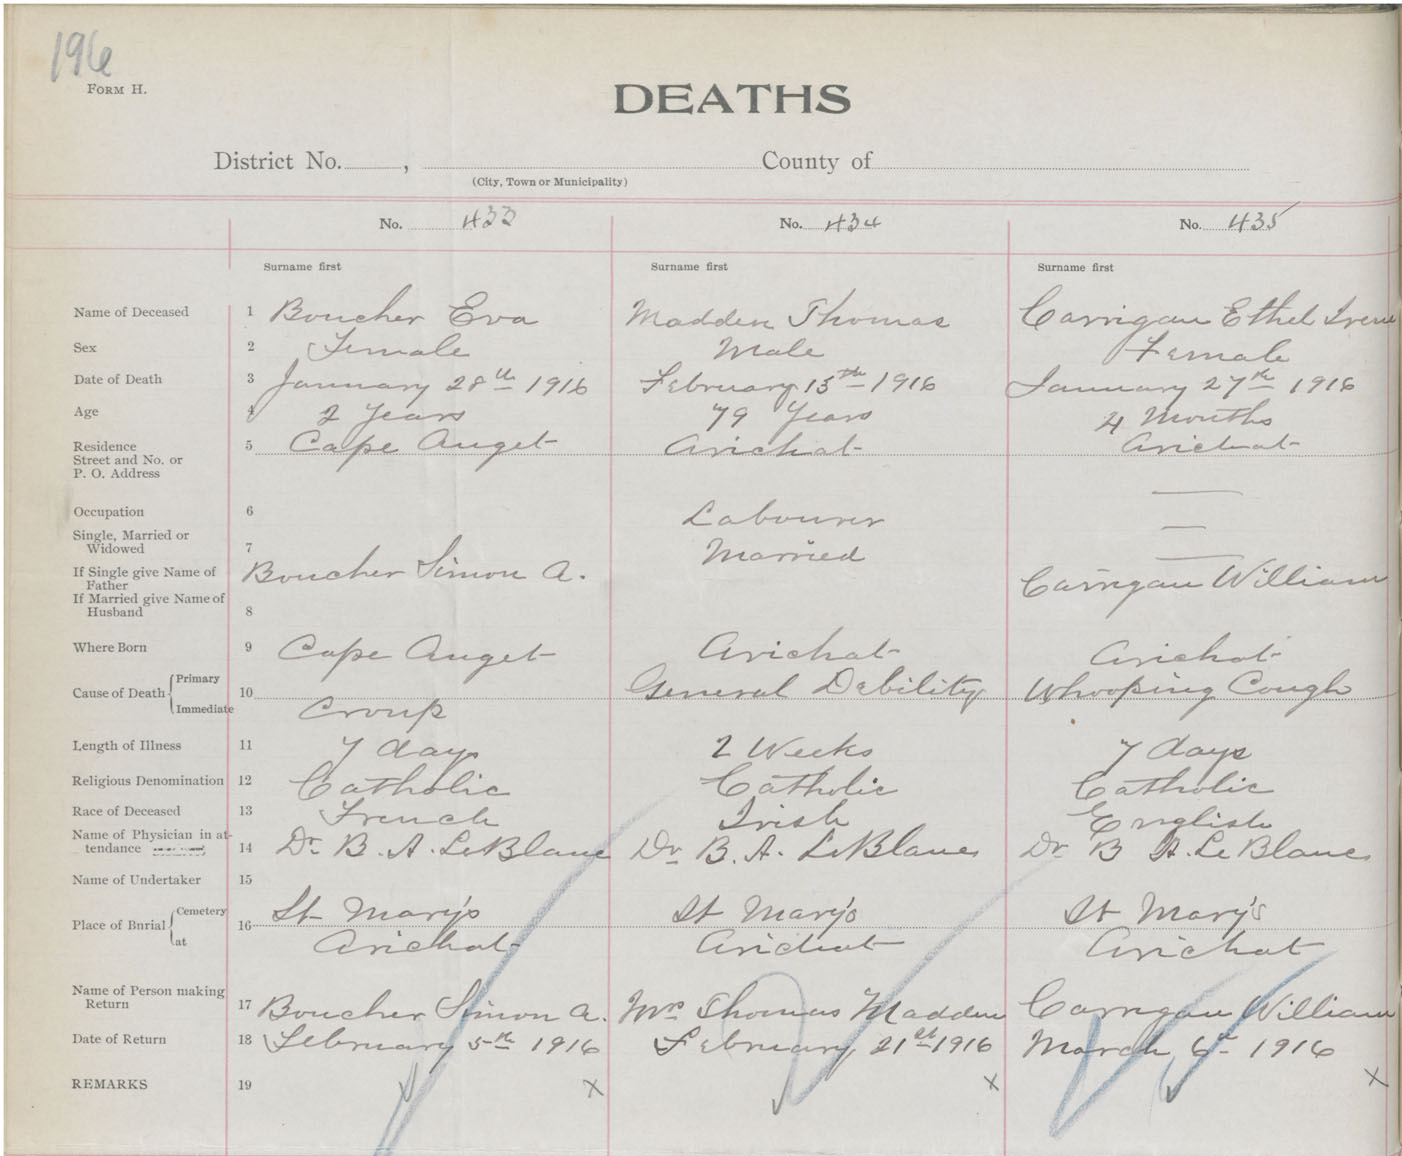 196
FORM H.
DEATHS
District No. , County of
(City, Town or Municipality)
No. 433 No. 434 No. 435
Surname first Surname first Surname first
Name of Deceased 1 Boucher Eva Madden Thomas Carrigan Ethel Irene
Sex 2 Female Male Female
Date of Death 3 January 28th 1916 February 15th 1916 January 27th 1916
Age 4 2 Years 79 Years 4 Months
Residence 5 Cape Auget Arichat Arichat
Street and No. or
P. O. Address
Occupation 6 Labourer
Single, Married or
Widowed 7 Married
If Single give Name of Boucher Simon A. Carrigan William
Father
If Married give Name of
Husband 8
Where Born 9 Cape Auget Arichat Arichat
Cause of Death Primary 10 General Debility Whooping Cough
Immediate Croup
Length of Illness 11 7 days 2 Weeks 7 days
Religious Denomination 12 Catholic Catholic Catholic
Race of Deceased 13 French Irish English
Name of Physician in at-
tendance 14 Dr. B. A. LeBlanc Dr. B. A. LeBlanc Dr B A. LeBlanc
Name of Undertaker 15
Place of Burial Cemetery 16 St Mary's St Mary's St Mary's
at Arichat Arichat Arichat
Name of Person making
Return 17 Boucher Simon A. Mrs Thomas Madden Carrigan William
Date of Return 18 February 5th 1916 February 21st 1916 March 6th 1916
REMARKS 19 x x x